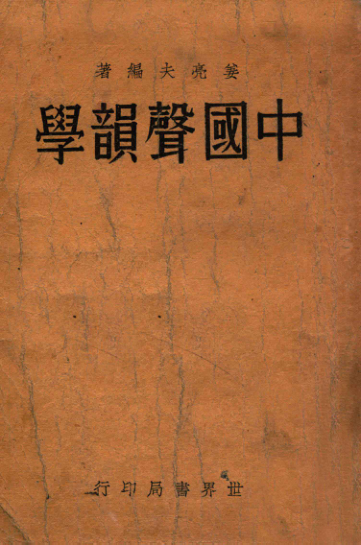 姜亮夫編著
中國聲韻學
世界書局印行